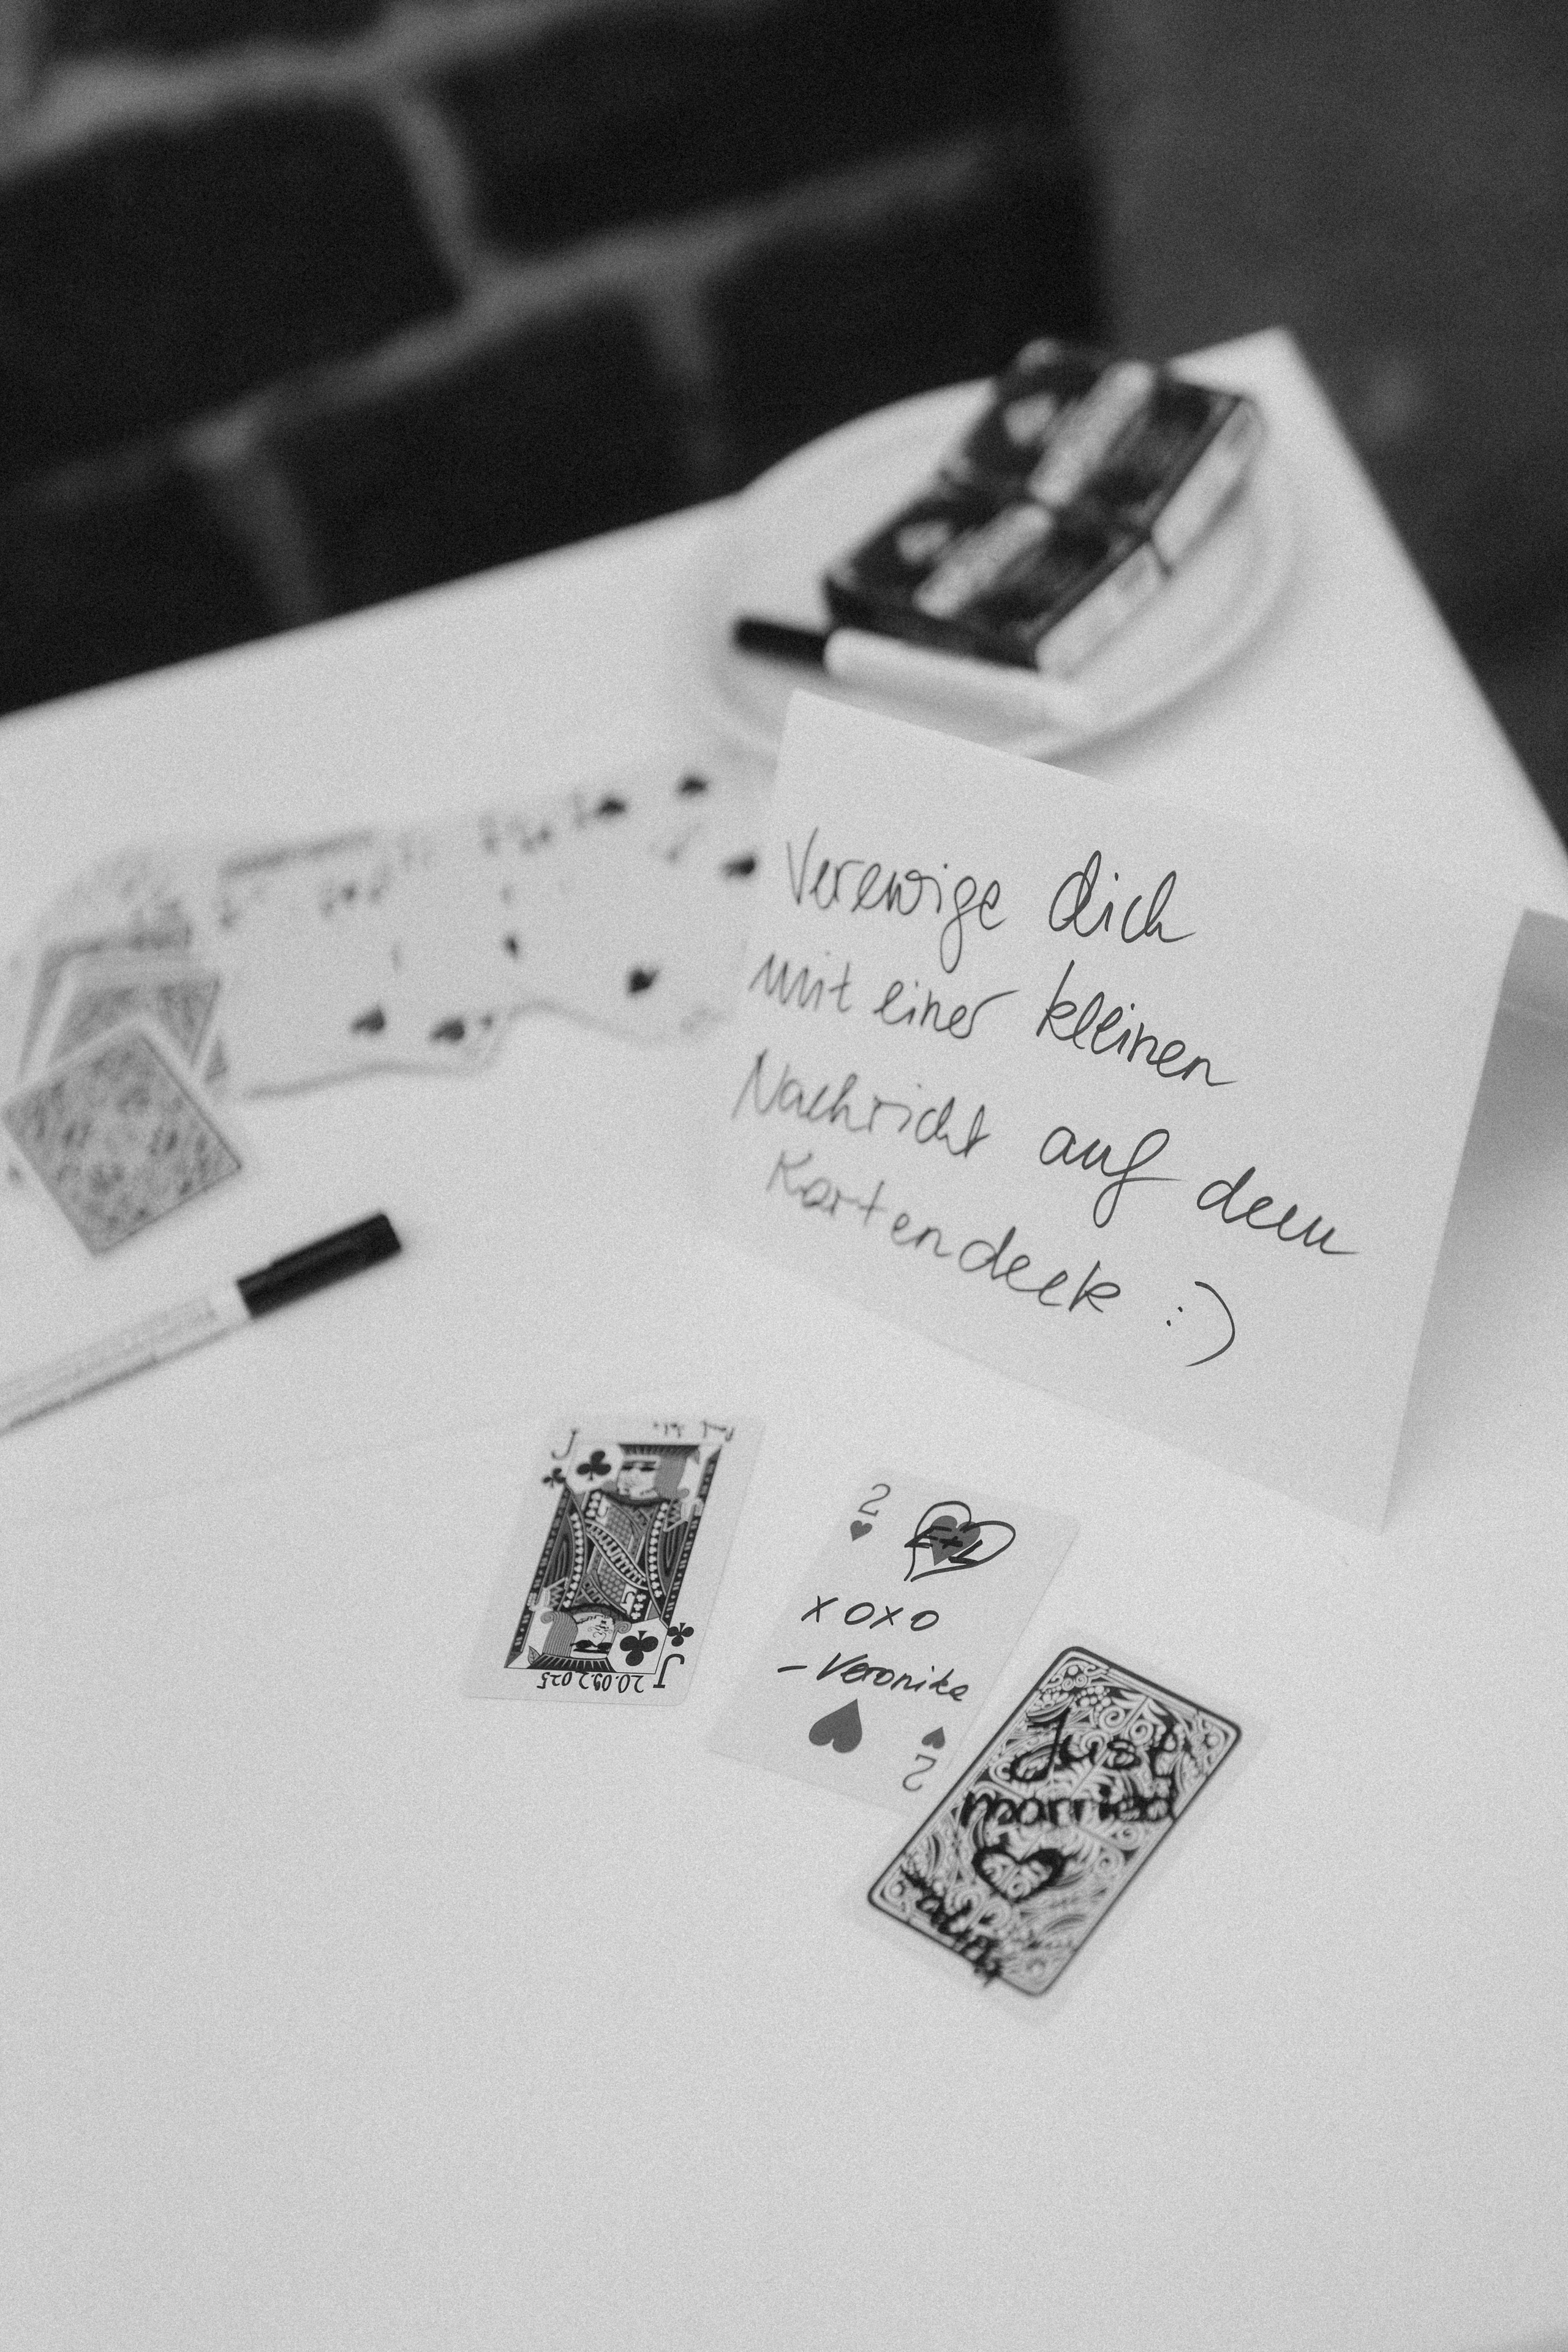 Verewige dich
mit einer kleinen
Nachricht auf dem
Kartendeck :)
J
J
20.09.2025
2
XOXO
- Veronika
2
Just
married